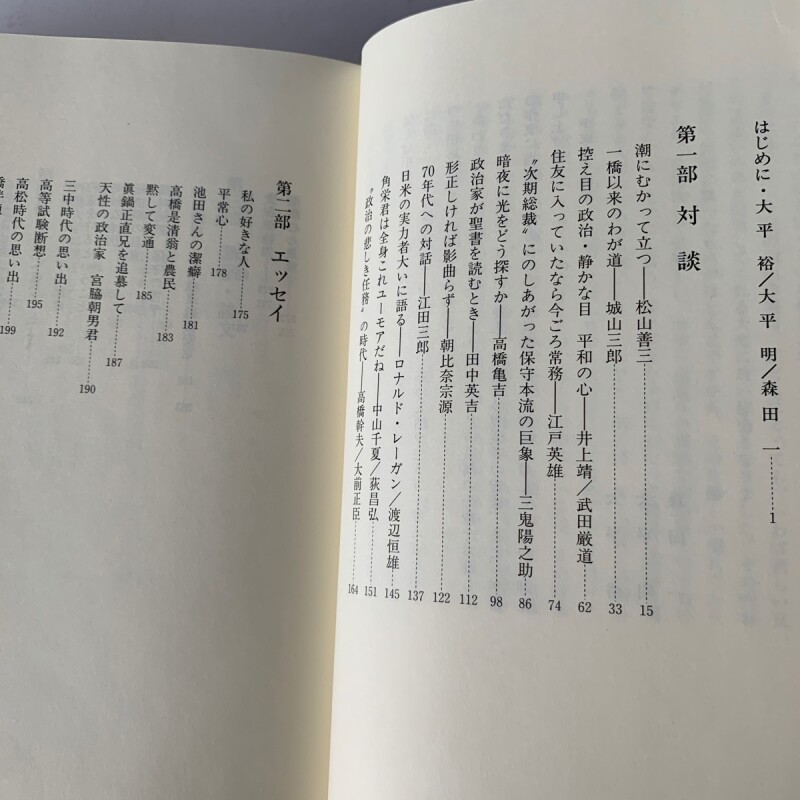 はじめに・大平 裕／大平 明／森田 一 1
第一部 対談
潮にむかって立つ——松山善三 15
一橋以来のわが道——城山三郎 33
控え目の政治・静かな目 平和の心——井上靖／武田厳道 62
住友に入っていたなら今ごろ常務——江戸英雄 74
〝次期総裁〟にのしあがった保守本流の巨象——三鬼陽之助 86
暗夜に光をどう探すか——高橋亀吉 98
政治家が聖書を読むとき——田中英吉 112
形正しければ影曲らず——朝比奈宗源 122
70年代への対話——江田三郎 137
日米の実力者大いに語る——ロナルド・レーガン／渡辺恒雄 145
角栄君は全身これユーモアだね——中山千夏／荻昌弘 151
〝政治の悲しき任務〟の時代——高橋幹夫／大前正臣 164
第二部 エッセイ
私の好きな人 175
平常心 178
池田さんの潔癖 181
高橋是清翁と農民 183
黙して変通 185
眞鍋正直兄を追慕して 187
天性の政治家 宮脇朝男君 190
三中時代の思い出 192
高等試験断想 195
高松時代の思い出 199